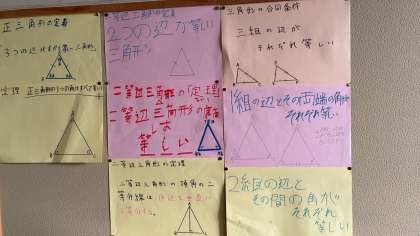 正三角形の定義
3つの辺
定理 正三角形の3つの角はすべて等しい
二等辺三角形の定義
2つの辺が等しい
三角形
二等辺三角形の「定理」
二等辺三角形の底角
は
等しい
二等辺三角形の定理
二等辺三角形の頂角の二
等分線は底辺を垂直に
2等分する。
三角形の合同条件
三組の辺が
それぞれ等しい
1組の辺とその両端の角が
それぞれ等しい
2組の辺と
その間の角が
それぞれ
等しい